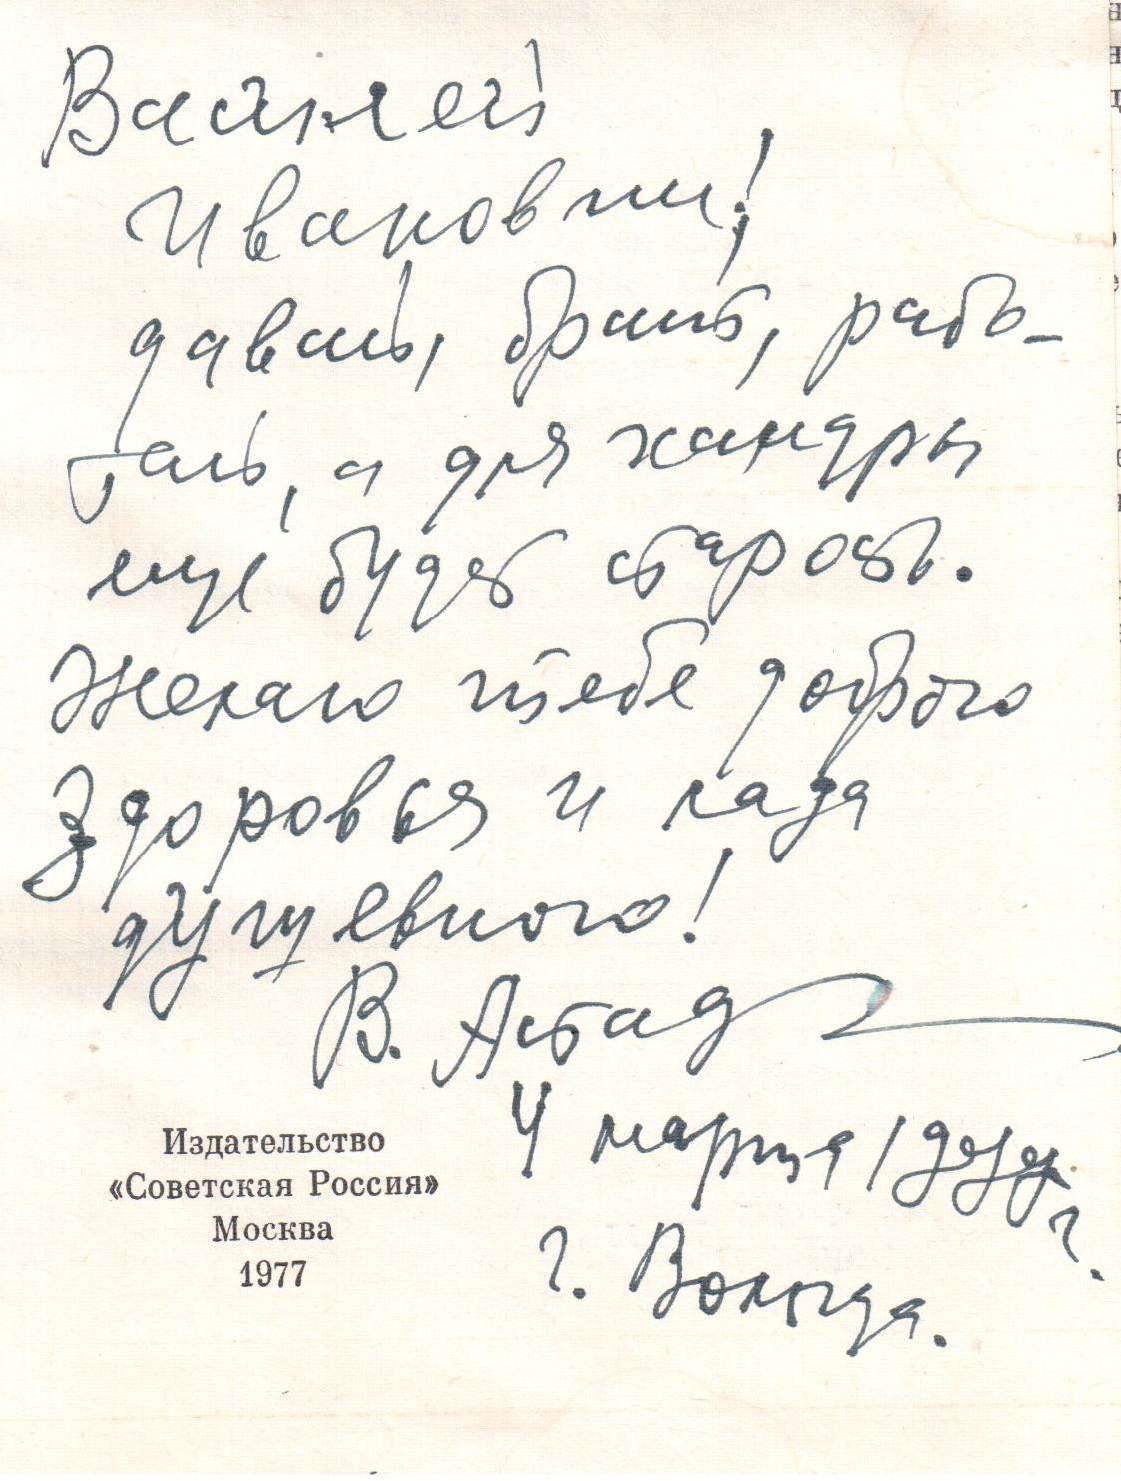 Василий
Иванович!
давай, брат, рабо-
тать, а для хандры
ещё будет старость.
Желаю тебе доброго
здоровья и лада
душевного!
В. Астаф
4 марта
г. Вологда.
Издательство
«Советская Россия»
Москва
1977